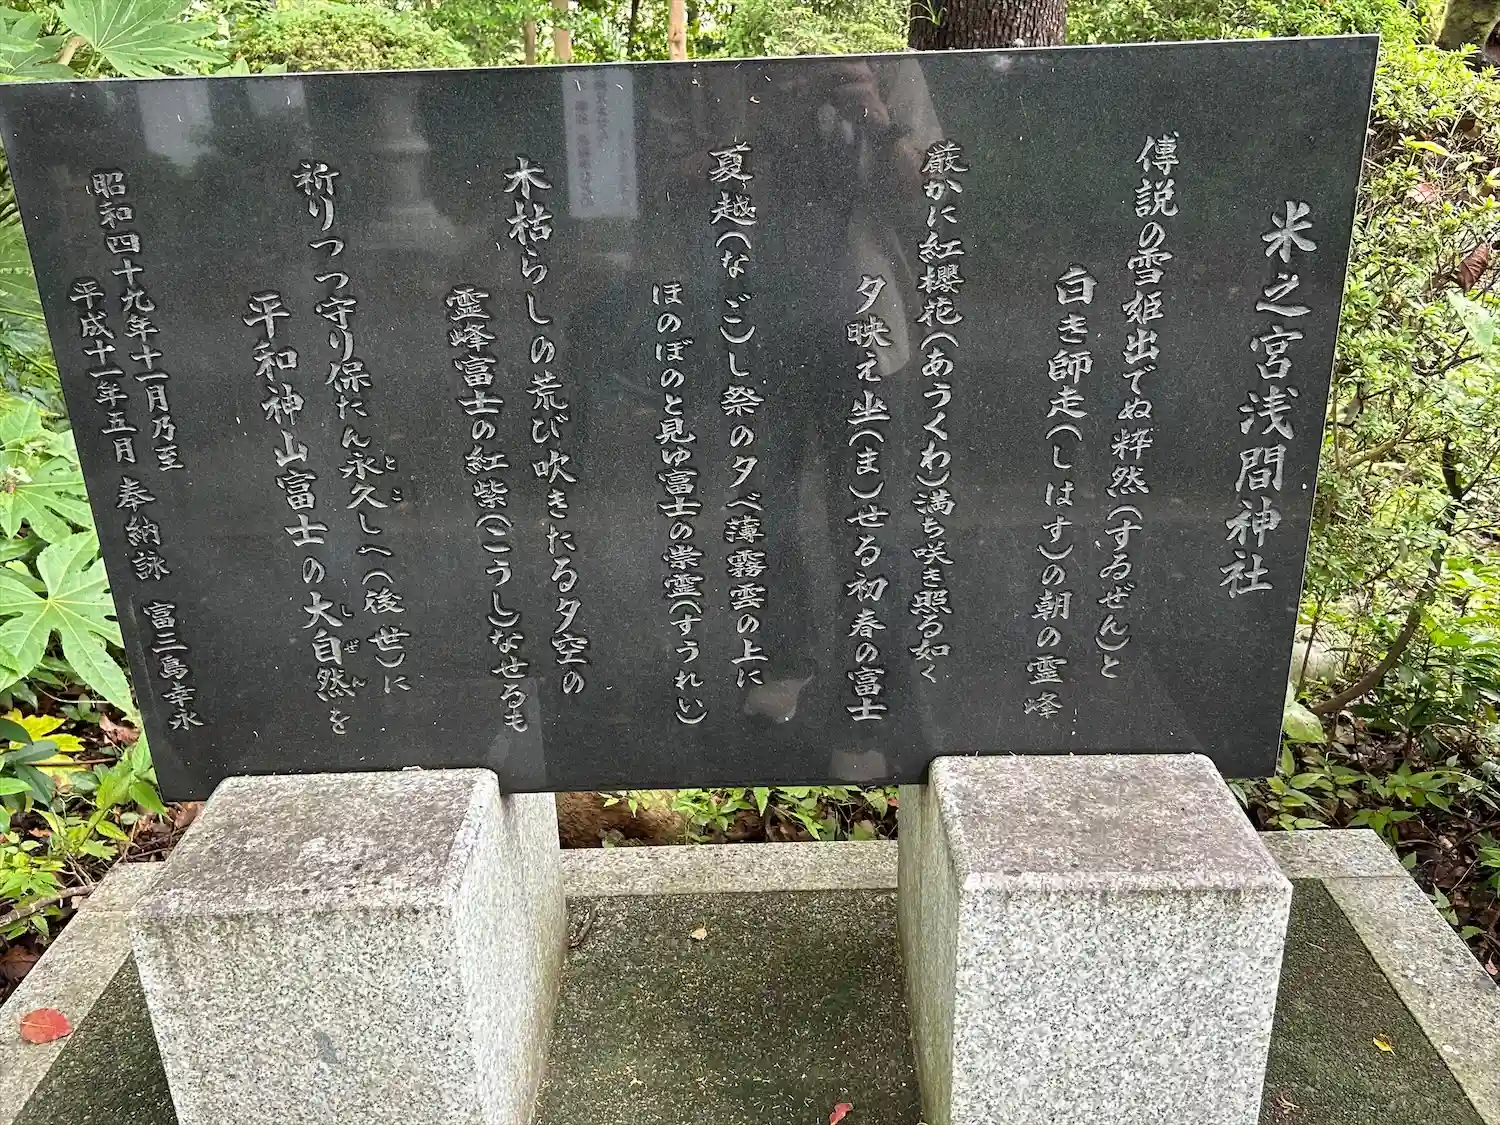 米之宮浅間神社
傳説の雪姫出でぬ粋然(すゐぜん)と
白き師走(しはす)の朝の霊峰
厳かに紅櫻花(あうくわ)満ち咲き照る如く
夕映え坐(ま)せる初春の富士
夏越(なごし)し祭の夕べ薄霧雲の上に
ほのぼのと見ゆ富士の崇霊(すうれい)
木枯らしの荒び吹きたる夕空の
霊峰富士の紅紫(こうし)なせるも
祈りつつ守り保たん永久しへ(後世)に
とこ
平和神山富士の大自然を
しぜん
昭和四十九年十一月乃至
平成十一年五月 奉納詠 富三島幸永